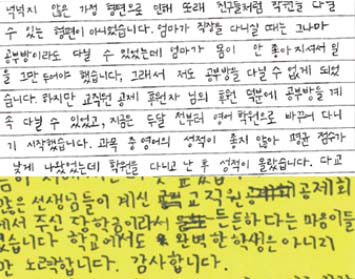 넉넉지 않은 가정 형편으로 인해 또래 친구들처럼 학원을 다닐
수 있는 형편이 아니었습니다. 엄마가 직장을 다니실 때는 그나마
공부방이라도 다닐 수 있었는데 엄마가 몸이 안 좋아지셔서 일
을 그만 두어야 했습니다. 그래서 저도 공부방을 다닐 수 없게 되었
습니다. 하지만 교직원 공제 후원자 님의 후원 덕분에 공부방을 계
속 다닐 수 있었고, 지금은 두달 전부터 영어 학원으로 바꾸어 다니
기 시작했습니다. 과목 중 영어의 성적이 좋지 않아 평균 점수가
낮게 나왔었는데 학원을 다니고 난 후 성적이 올랐습니다. 다교
많은 선생님들이 계신 교직원공제회
에서 주신 장학금이라서 든든하다는 마음이들
었습니다. 학교에서도 완벽한 학생은 아니지
만 노력합니다. 감사합니다.